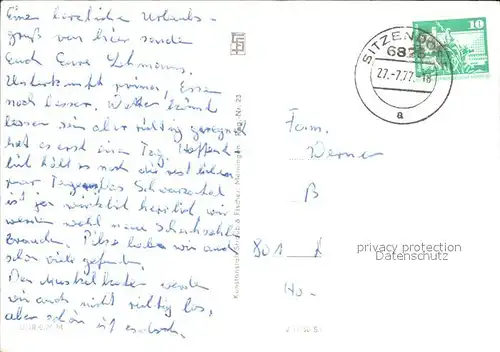 Einen herzlichen Urlaubs-
gruß von hier senden
Euch Eure Lehmanns.
Unterkunft prima, Essen
noch besser. Wetter könnte
besser sein aber richtig geregnet
hat es erst einen Tag. Hoffent-
lich hält es noch die restlichen
paar Tage. Das Schwarzatal
ist ja wirklich herrlich, wir
werden wohl neue Schuhsohlen
brauchen. Pilze haben wir auch
schon viele gefunden.
Den Muskelkater werden
wir auch nicht richtig los,
aber schön ist es doch.
Kunstanstalt Straub & Fischer, Meiningen Best.-Nr. 23
SITZENDORF
6823
27.-7.77.-18
a
10
Fam.
Werner
B
801
privacy protection
Datenschutz